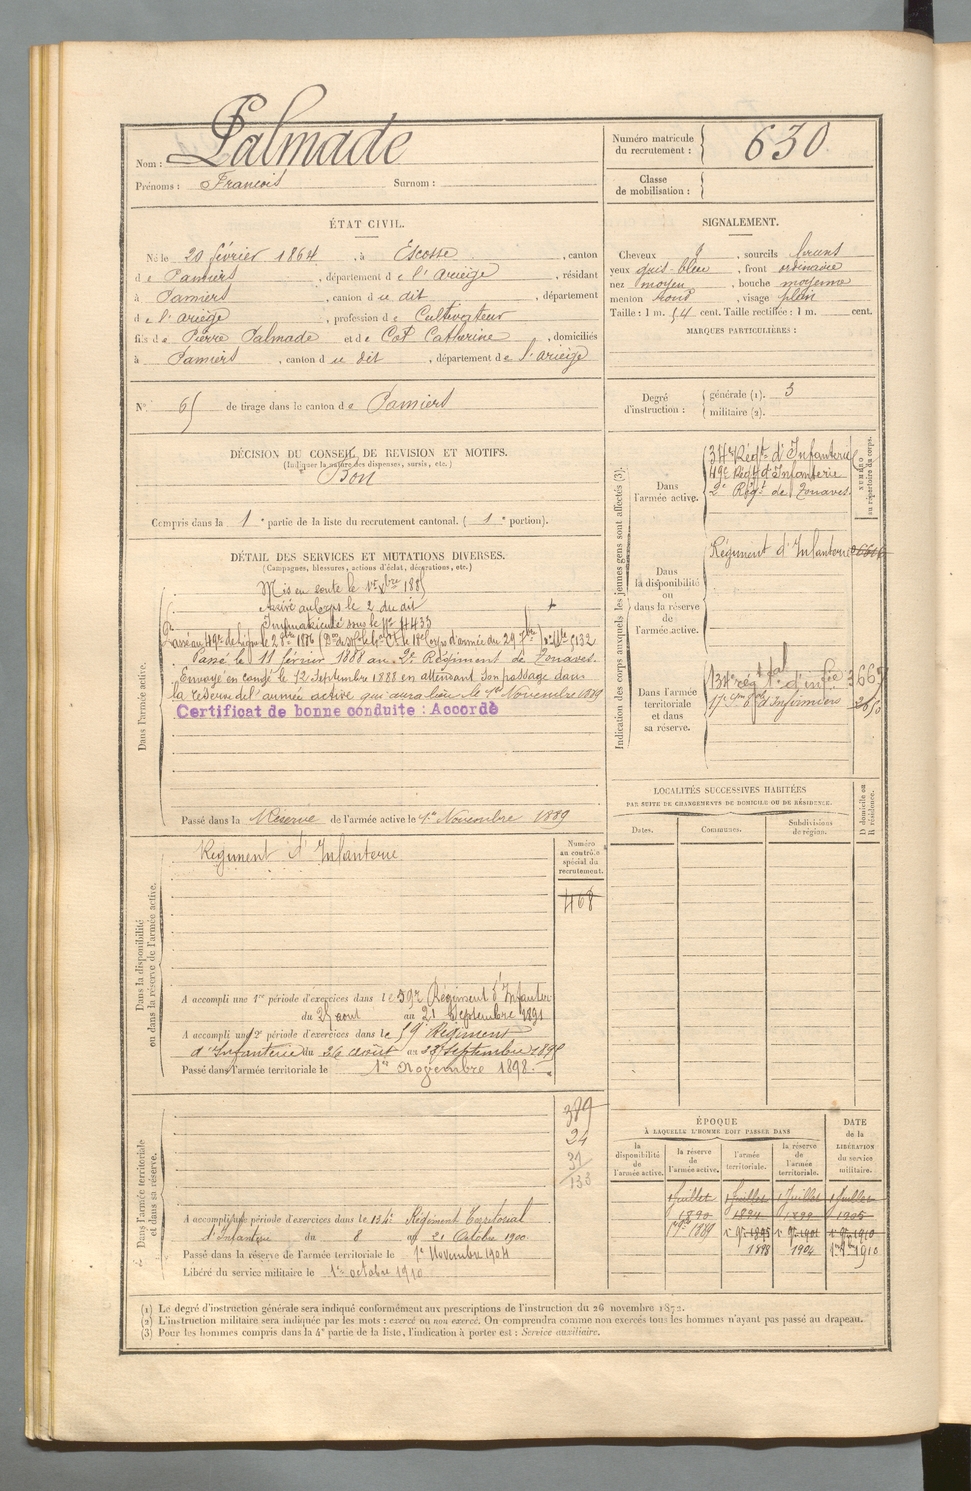 Nom : Palmade
Prénoms : François Surnom :
Numéro matricule
du recrutement : 630
Classe
de mobilisation :
ÉTAT CIVIL.
Né le 20 février 1864, à Escosse, canton
de Pamiers, département de l'Ariège, résidant
à Pamiers, canton du dit, département
de l'Ariège, profession de Cultivateur
fils de Pierre Palmade et de Cot Catherine, domiciliés
à Pamiers, canton du dit, département de l'Ariège
SIGNALEMENT.
Cheveux, sourcils bruns
yeux gris-bleu, front ordinaire
nez moyen, bouche moyenne
menton rond, visage plein
Taille : 1 m. 54 cent. Taille rectifiée : 1 m. cent.
MARQUES PARTICULIÈRES :
N° 65 de tirage dans le canton de Pamiers
Degré
d'instruction :
générale (1). 3
militaire (2).
DÉCISION DU CONSEIL DE REVISION ET MOTIFS.
(Indiquer la nature des dispenses, sursis, etc.)
Bon
Compris dans la 1e partie de la liste du recrutement cantonal. (1e portion).
DÉTAIL DES SERVICES ET MUTATIONS DIVERSES.
(Campagnes, blessures, actions d'éclat, décorations, etc.)
Dans l'armée active.
Mis en route le 1er Xbre 1885
Arrivé au Corps le 2 du dit
Immatriculé sous le N° 4433
Passé au 49e de Ligne le 28 1886
Passé le 11 février 1888 au 2e Régiment de Zouaves.
Envoyé en congé le 12 Septembre 1888 en attendant son passage dans
la réserve de l'armée active qui aura lieu le 1er Novembre 1889
Certificat de bonne conduite : Accordé
Passé dans la Réserve de l'armée active le 1er Novembre 1889
Indication des corps auxquels les jeunes gens sont affectés (3).
NUMÉRO
au répertoire du corps.
Dans
l'armée active.
34e Régt d'Infanterie
49e Régt d'Infanterie
2e Régt de Zouaves.
Dans
la disponibilité
ou
dans la réserve
de
l'armée active.
Régiment d'Infanterie
Dans l'armée
territoriale
et dans
sa réserve.
134e régt tal d'infie
17e d'Infirmiers
LOCALITÉS SUCCESSIVES HABITÉES
PAR SUITE DE CHANGEMENTS DE DOMICILE OU DE RÉSIDENCE.
Dates. Communes. Subdivisions
de région.
D domicile ou
R résidence.
Dans la disponibilité
ou dans la réserve de l'armée active.
Régiment d'Infanterie
Numéro
au contrôle
spécial du
recrutement.
468
A accompli une 1re période d'exercices dans le 59e Régiment d'Infanterie
du 25 aout au 21 Septembre 1891
A accompli une 2e période d'exercices dans le 59e Régiment
d'Infanterie du 26 août au 22 septembre
Passé dans l'armée territoriale le 1er Novembre 1898.
Dans l'armée territoriale
et dans sa réserve.
389
24
31
133
A accompli une période d'exercices dans le 134e Régiment Territorial
d'Infanterie du 8 au 21 Octobre 1900
Passé dans la réserve de l'armée territoriale le 1er Novembre 1904
Libéré du service militaire le 1er octobre 1910
ÉPOQUE
À LAQUELLE L'HOMME DOIT PASSER DANS
DATE
de la
LIBÉRATION
du service
militaire.
la
disponibilité
de
l'armée active.
la réserve
de
l'armée active.
l'armée
territoriale.
la réserve
de
l'armée
territoriale.
1 Juillet 1 Juillet 1 Juillet 1 Juillet
1890 1894 1899 1905
1889 1895 1901 1910
1898 1904 1910
(1) Le degré d'instruction générale sera indiqué conformément aux prescriptions de l'instruction du 26 novembre 1872.
(2) L'instruction militaire sera indiquée par les mots : exercé ou non exercé. On comprendra comme non exercés tous les hommes n'ayant pas passé au drapeau.
(3) Pour les hommes compris dans la 4e partie de la liste, l'indication à porter est : Service auxiliaire.